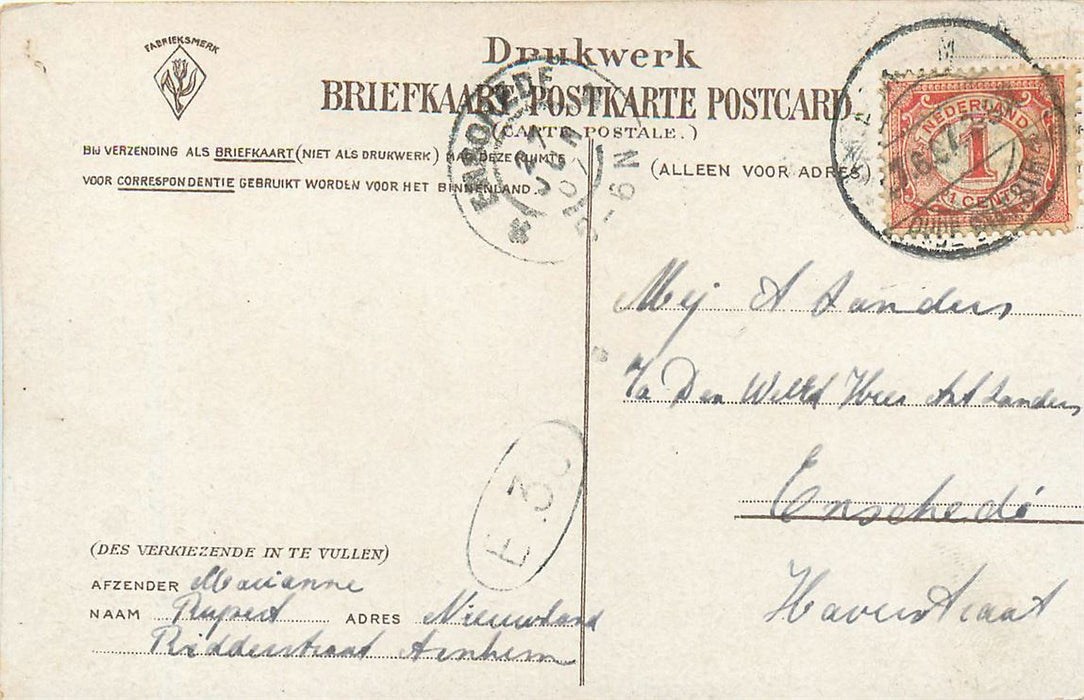 FABRIEKSMERK
Drukwerk
BRIEFKAART POSTKARTE POSTCARD
(CARTE POSTALE.)
BIJ VERZENDING ALS BRIEFKAART (NIET ALS DRUKWERK) MAG DEZE RUIMTE
VOOR CORRESPONDENTIE GEBRUIKT WORDEN VOOR HET BINNENLAND
(ALLEEN VOOR ADRES)
NEDERLAND
1
1 CENT
Mej A Sanders
Den Heer Sanders
Enschedé
Haverstraat
E 38
(DES VERKIEZENDE IN TE VULLEN)
AFZENDER Marianne
NAAM Rupert ADRES Nieuwland
Ridderstraat Arnhem